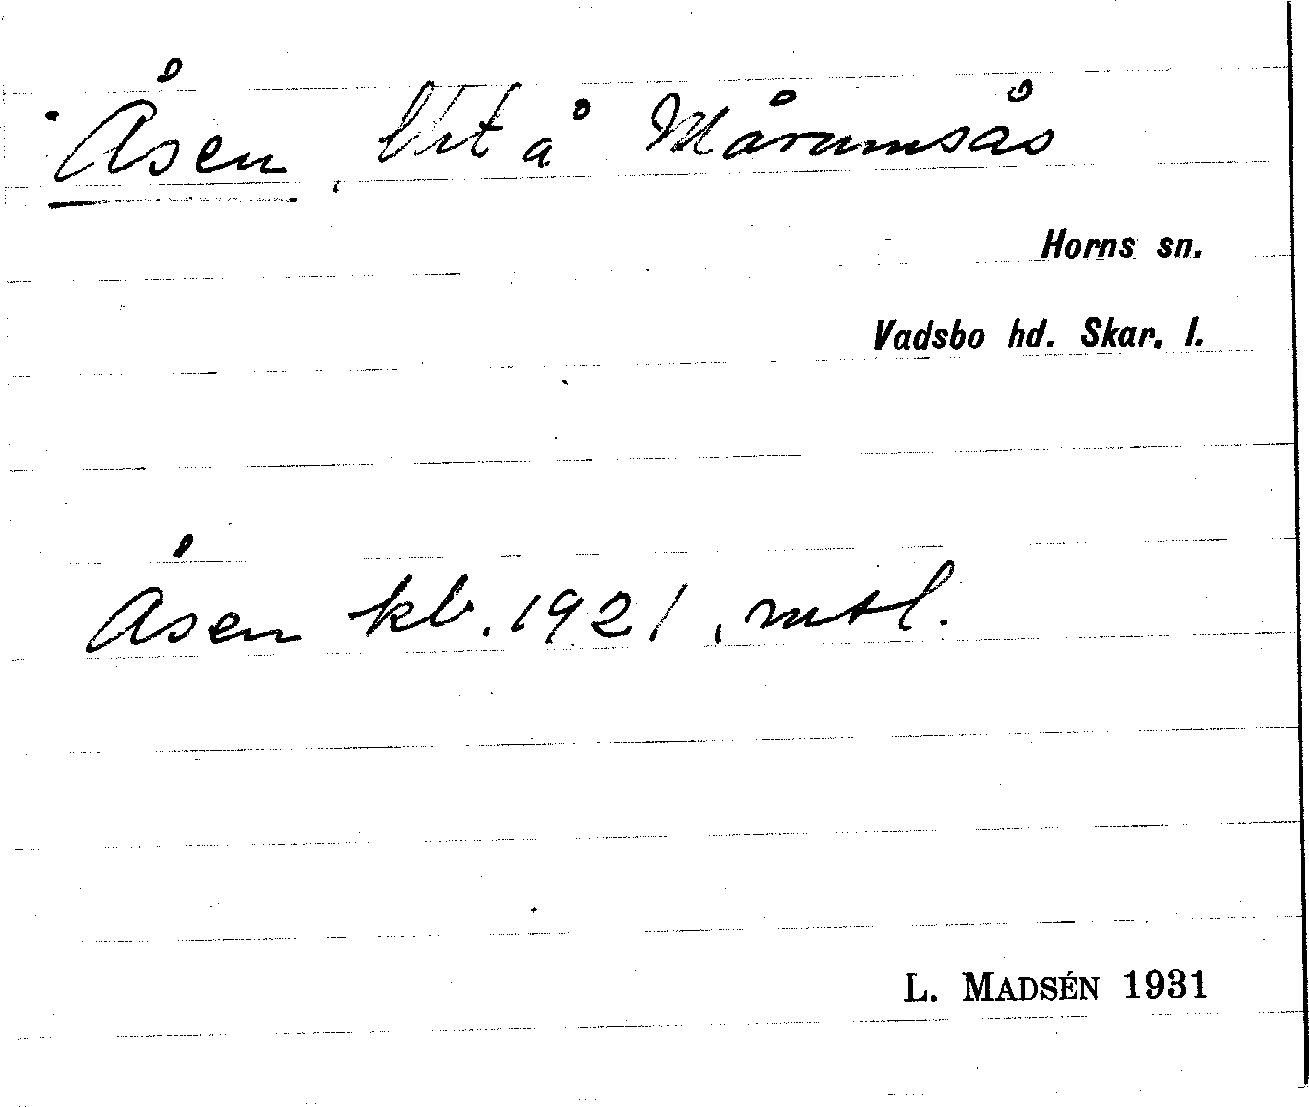 Åsen, lht å Mårumsås
Horns sn.
Vadsbo hd. Skar. l.
Åsen kb. 1921, mtl.
L. MADSÉN 1931